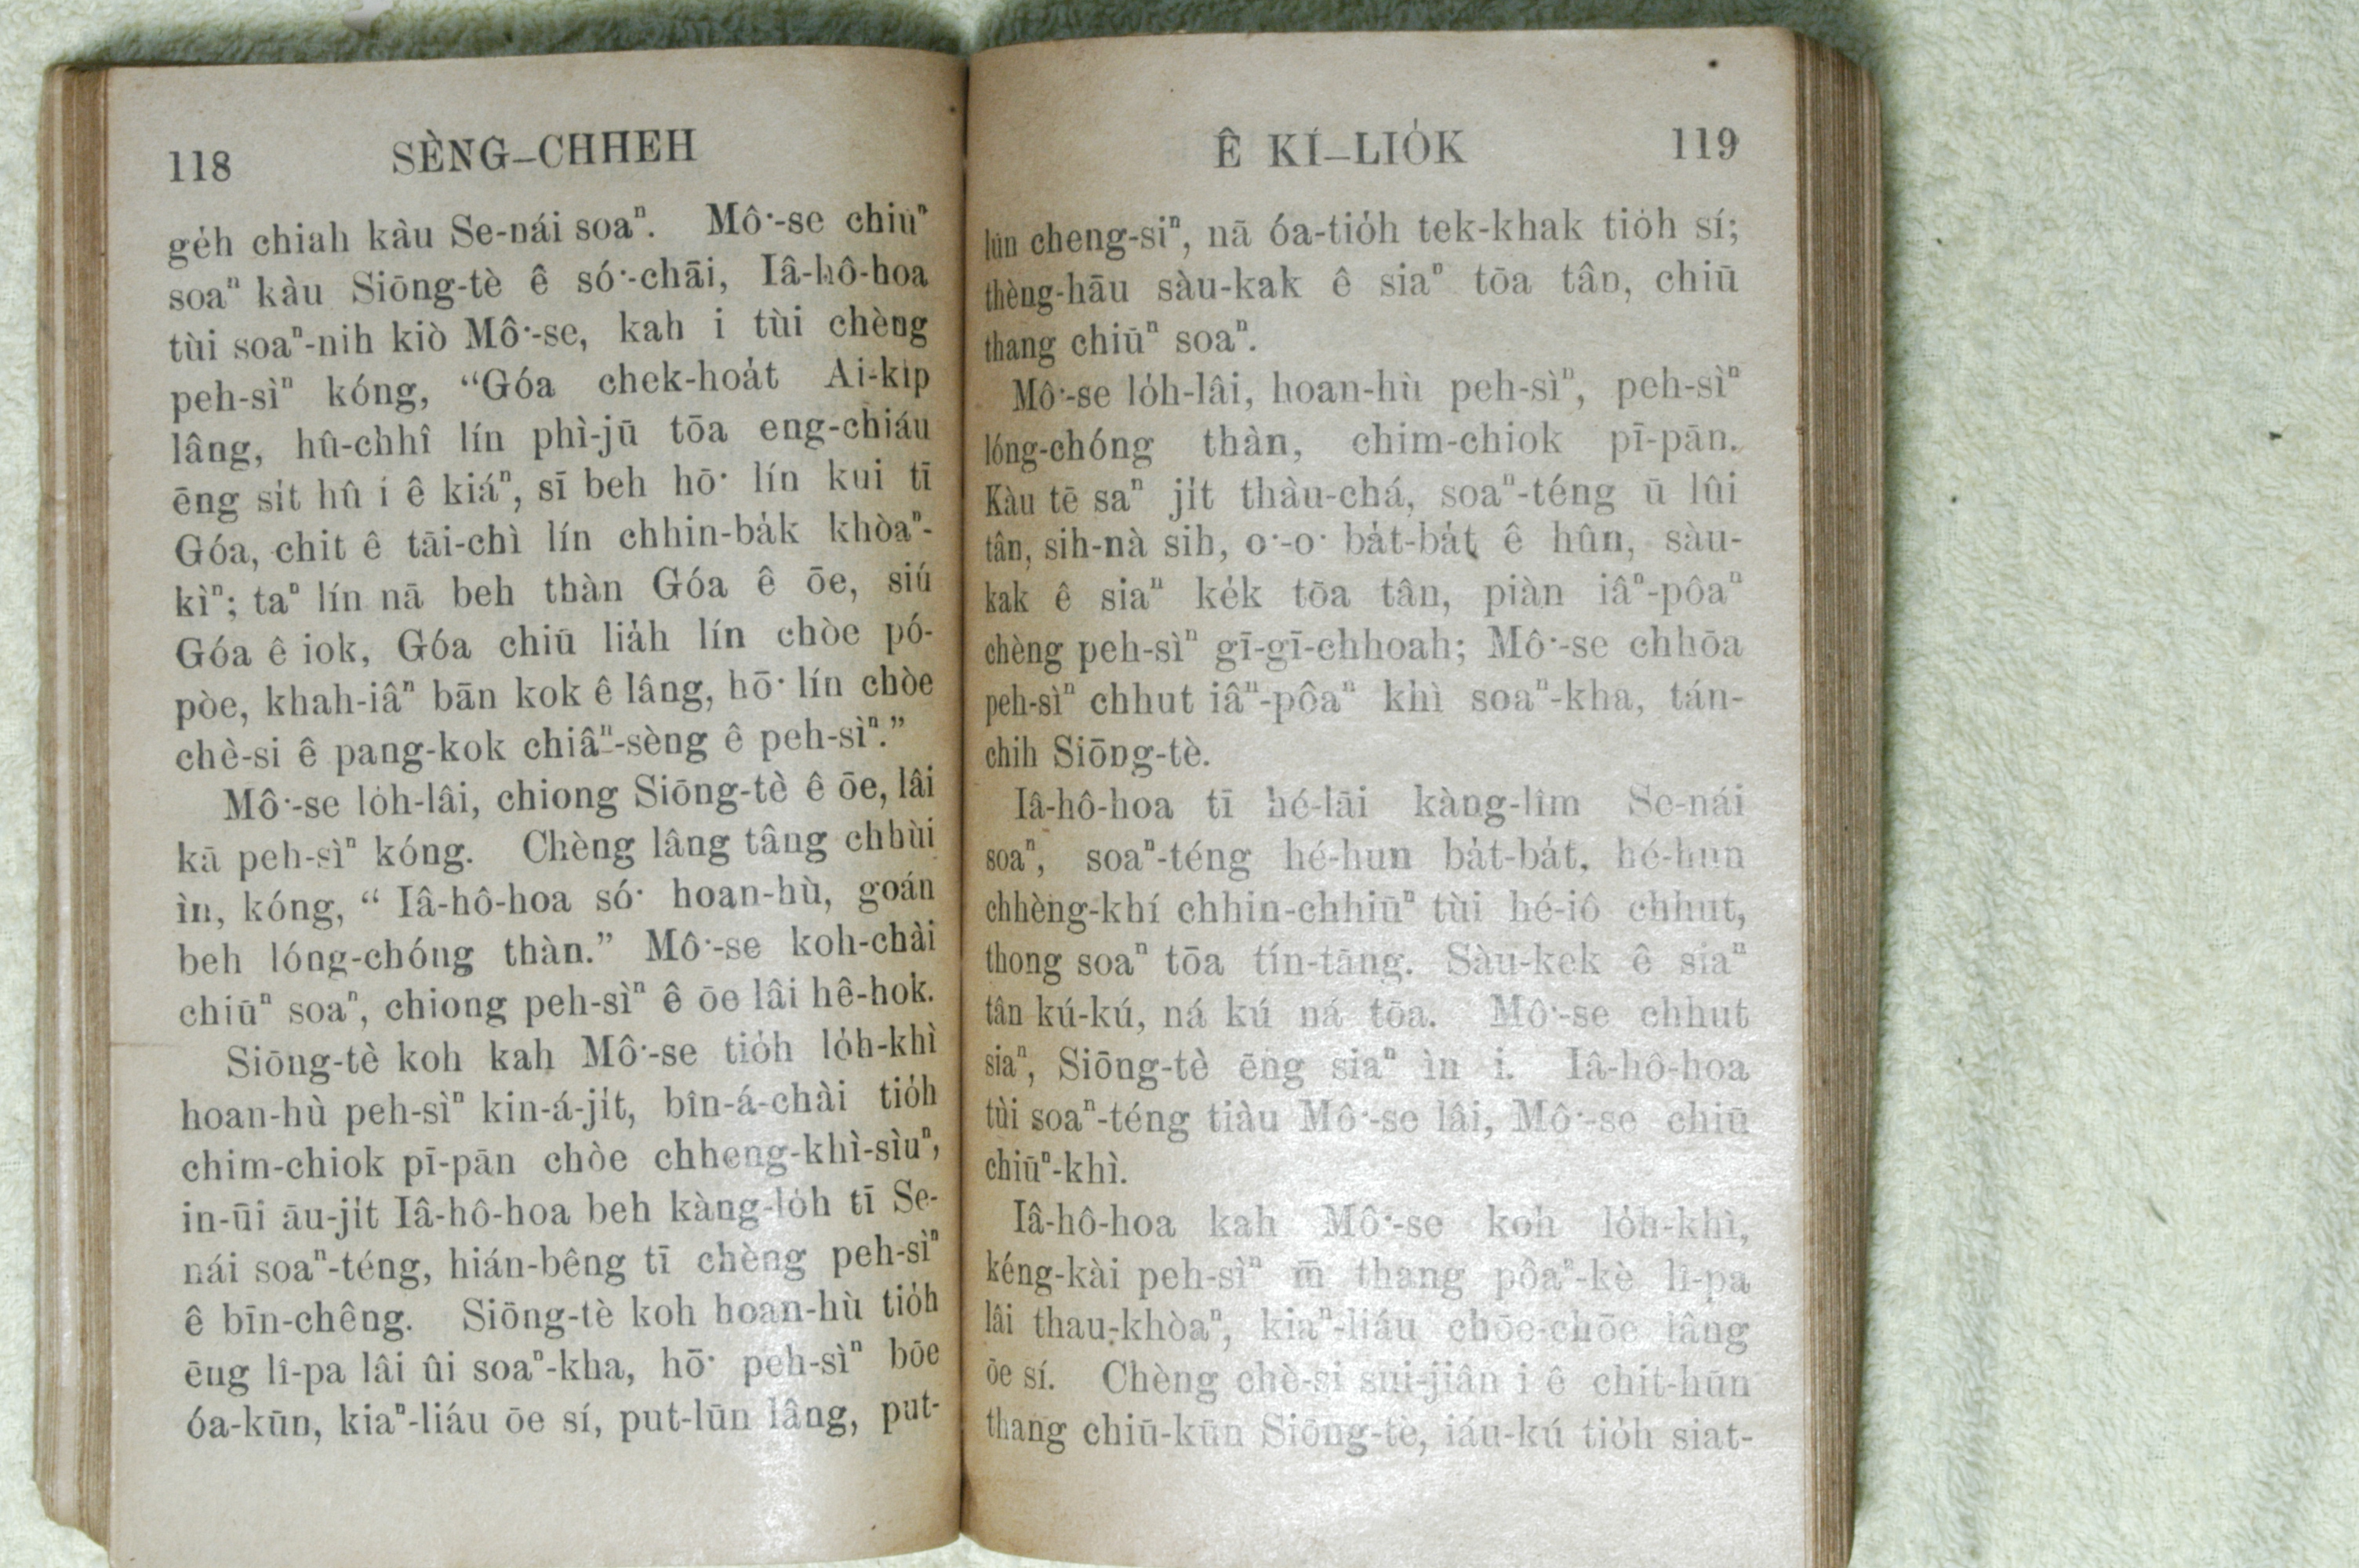 118 SÈNG–CHHEH
ge̍h chiah kàu Se-nái soaⁿ. Mô͘-se chiūⁿ
soaⁿ kàu Siōng-tè ê só͘-chāi, Iâ-hô-hoa
tùi soaⁿ-nih kiò Mô͘-se, kah i tùi chèng
peh-sìⁿ kóng, “Góa chek-hoa̍t Ai-ki̍p
lâng, hû-chhî lín phì-jū tōa eng-chiáu
ēng si̍t hû i ê kiáⁿ, sī beh hō͘ lín kui tī
Góa, chit ê tāi-chì lín chhin-ba̍k khòaⁿ-
kìⁿ; taⁿ lín nā beh thàn Góa ê ōe, siú
Góa ê iok, Góa chiū lia̍h lín chòe pó-
pòe, khah-iâⁿ bān kok ê lâng, hō͘ lín chòe
chè-si ê pang-kok chiâⁿ-sèng ê peh-sìⁿ.”
Mô͘-se lo̍h-lâi, chiong Siōng-tè ê ōe, lâi
kā peh-sìⁿ kóng. Chèng lâng tâng chhùi
ìn, kóng, “ Iâ-hô-hoa só͘ hoan-hù, goán
beh lóng-chóng thàn.” Mô͘-se koh-chài
chiūⁿ soaⁿ, chiong peh-sìⁿ ê ōe lâi hê-hok.
Siōng-tè koh kah Mô͘-se tio̍h lo̍h-khì
hoan-hù peh-sìⁿ kin-á-ji̍t, bîn-á-chài tio̍h
chim-chiok pī-pān chòe chheng-khì-sìuⁿ,
in-ūi āu-ji̍t Iâ-hô-hoa beh kàng-lo̍h tī Se-
nái soaⁿ-téng, hián-bêng tī chèng peh-sìⁿ
ê bīn-chêng. Siōng-tè koh hoan-hù tio̍h
ēng lî-pa lâi ûi soaⁿ-kha, hō͘ peh-sìⁿ bōe
óa-kūn, kiaⁿ-liáu ōe sí, put-lūn lâng, put-
Ê KÍ–LIO̍K 119
lūn cheng-siⁿ, nā óa-tio̍h tek-khak tio̍h sí;
thèng-hāu sàu-kak ê siaⁿ tōa tân, chiū
thang chiūⁿ soaⁿ.
Mô͘-se lo̍h-lâi, hoan-hù peh-sìⁿ, peh-sìⁿ
lóng-chóng thàn, chim-chiok pī-pān.
Kàu tē saⁿ ji̍t thàu-chá, soaⁿ-téng ū lûi
tân, sih-nà sih, o͘-o͘ ba̍t-ba̍t ê hûn, sàu-
kak ê siaⁿ ke̍k tōa tân, piàn iâⁿ-pôaⁿ
chèng peh-sìⁿ gī-gī-chhoah; Mô͘-se chhōa
peh-sìⁿ chhut iâⁿ-pôaⁿ khì soaⁿ-kha, tán-
chih Siōng-tè.
Iâ-hô-hoa tī hé-lāi kàng-lîm Se-nái
soaⁿ, soaⁿ-téng hé-hun ba̍t-ba̍t, hé-hun
chhèng-khí chhin-chhiūⁿ tùi hé-iô chhut,
thong soaⁿ tōa tín-tāng. Sàu-kek ê siaⁿ
tân kú-kú, ná kú ná tōa. Mô͘-se chhut
siaⁿ, Siōng-tè ēng siaⁿ ìn i. Iâ-hô-hoa
tùi soaⁿ-téng tiàu Mô͘-se lâi, Mô͘-se chiū
chiūⁿ-khì.
Iâ-hô-hoa kah Mô͘-se koh lo̍h-khì,
kéng-kài peh-sìⁿ m̄ thang pôaⁿ-kè lî-pa
lâi thau-khòaⁿ, kiaⁿ-liáu chōe-chōe lâng
ōe sí. Chèng chè-si sui-jiân i ê chit-hūn
thang chiū-kūn Siōng-tè, iáu-kú tio̍h siat-